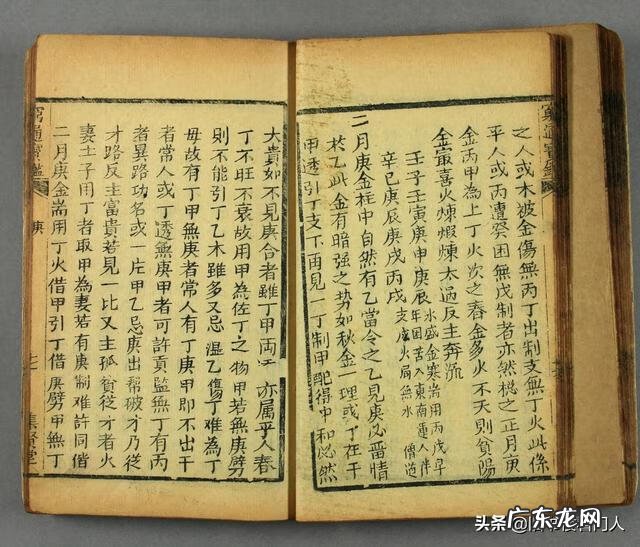 窮通寳鑑
之人或木被金傷無丙丁出制支無丁火此係
平人或丙遭癸困無戊制者亦然總之正月庚
金丙甲為上丁火次之春金多火不夭則貧陽
金最喜火煉煅太過反主奔流
壬子壬寅庚申庚辰 水盛金寒尚用丙戊早年困苦入東南運入泮
辛巳庚辰庚戌丙戌 支成火局無水僧道
二月庚金柱中自然有乙當令之乙見庚必晉情
於乙此金有暗强之势如秋金一理或丁在干
甲透引丁支下再見一丁制甲配得中和必然
大貴如不見庚合者雖丁甲両工亦属平人春
丁不旺不衰故用甲為佐丁之物甲若無庚劈
則不能引丁乙木雖多又忌湿乙傷丁难為丁
母故有丁甲無庚者常人有丁庚甲即不出干
者常人或丁透無庚甲者可許貢監無丁有丙
者異路功名或一片甲乙忌庚出帮破才乃從
才路反主富貴若見一比又主孤貧從才者火
妻土子用丁者取甲為妻若有庚制难許同偕
二月庚金耑用丁火借甲引丁借庚劈甲無丁
窮通寳鑑 庚 七 集賢堂
头条 门人
广东龙网